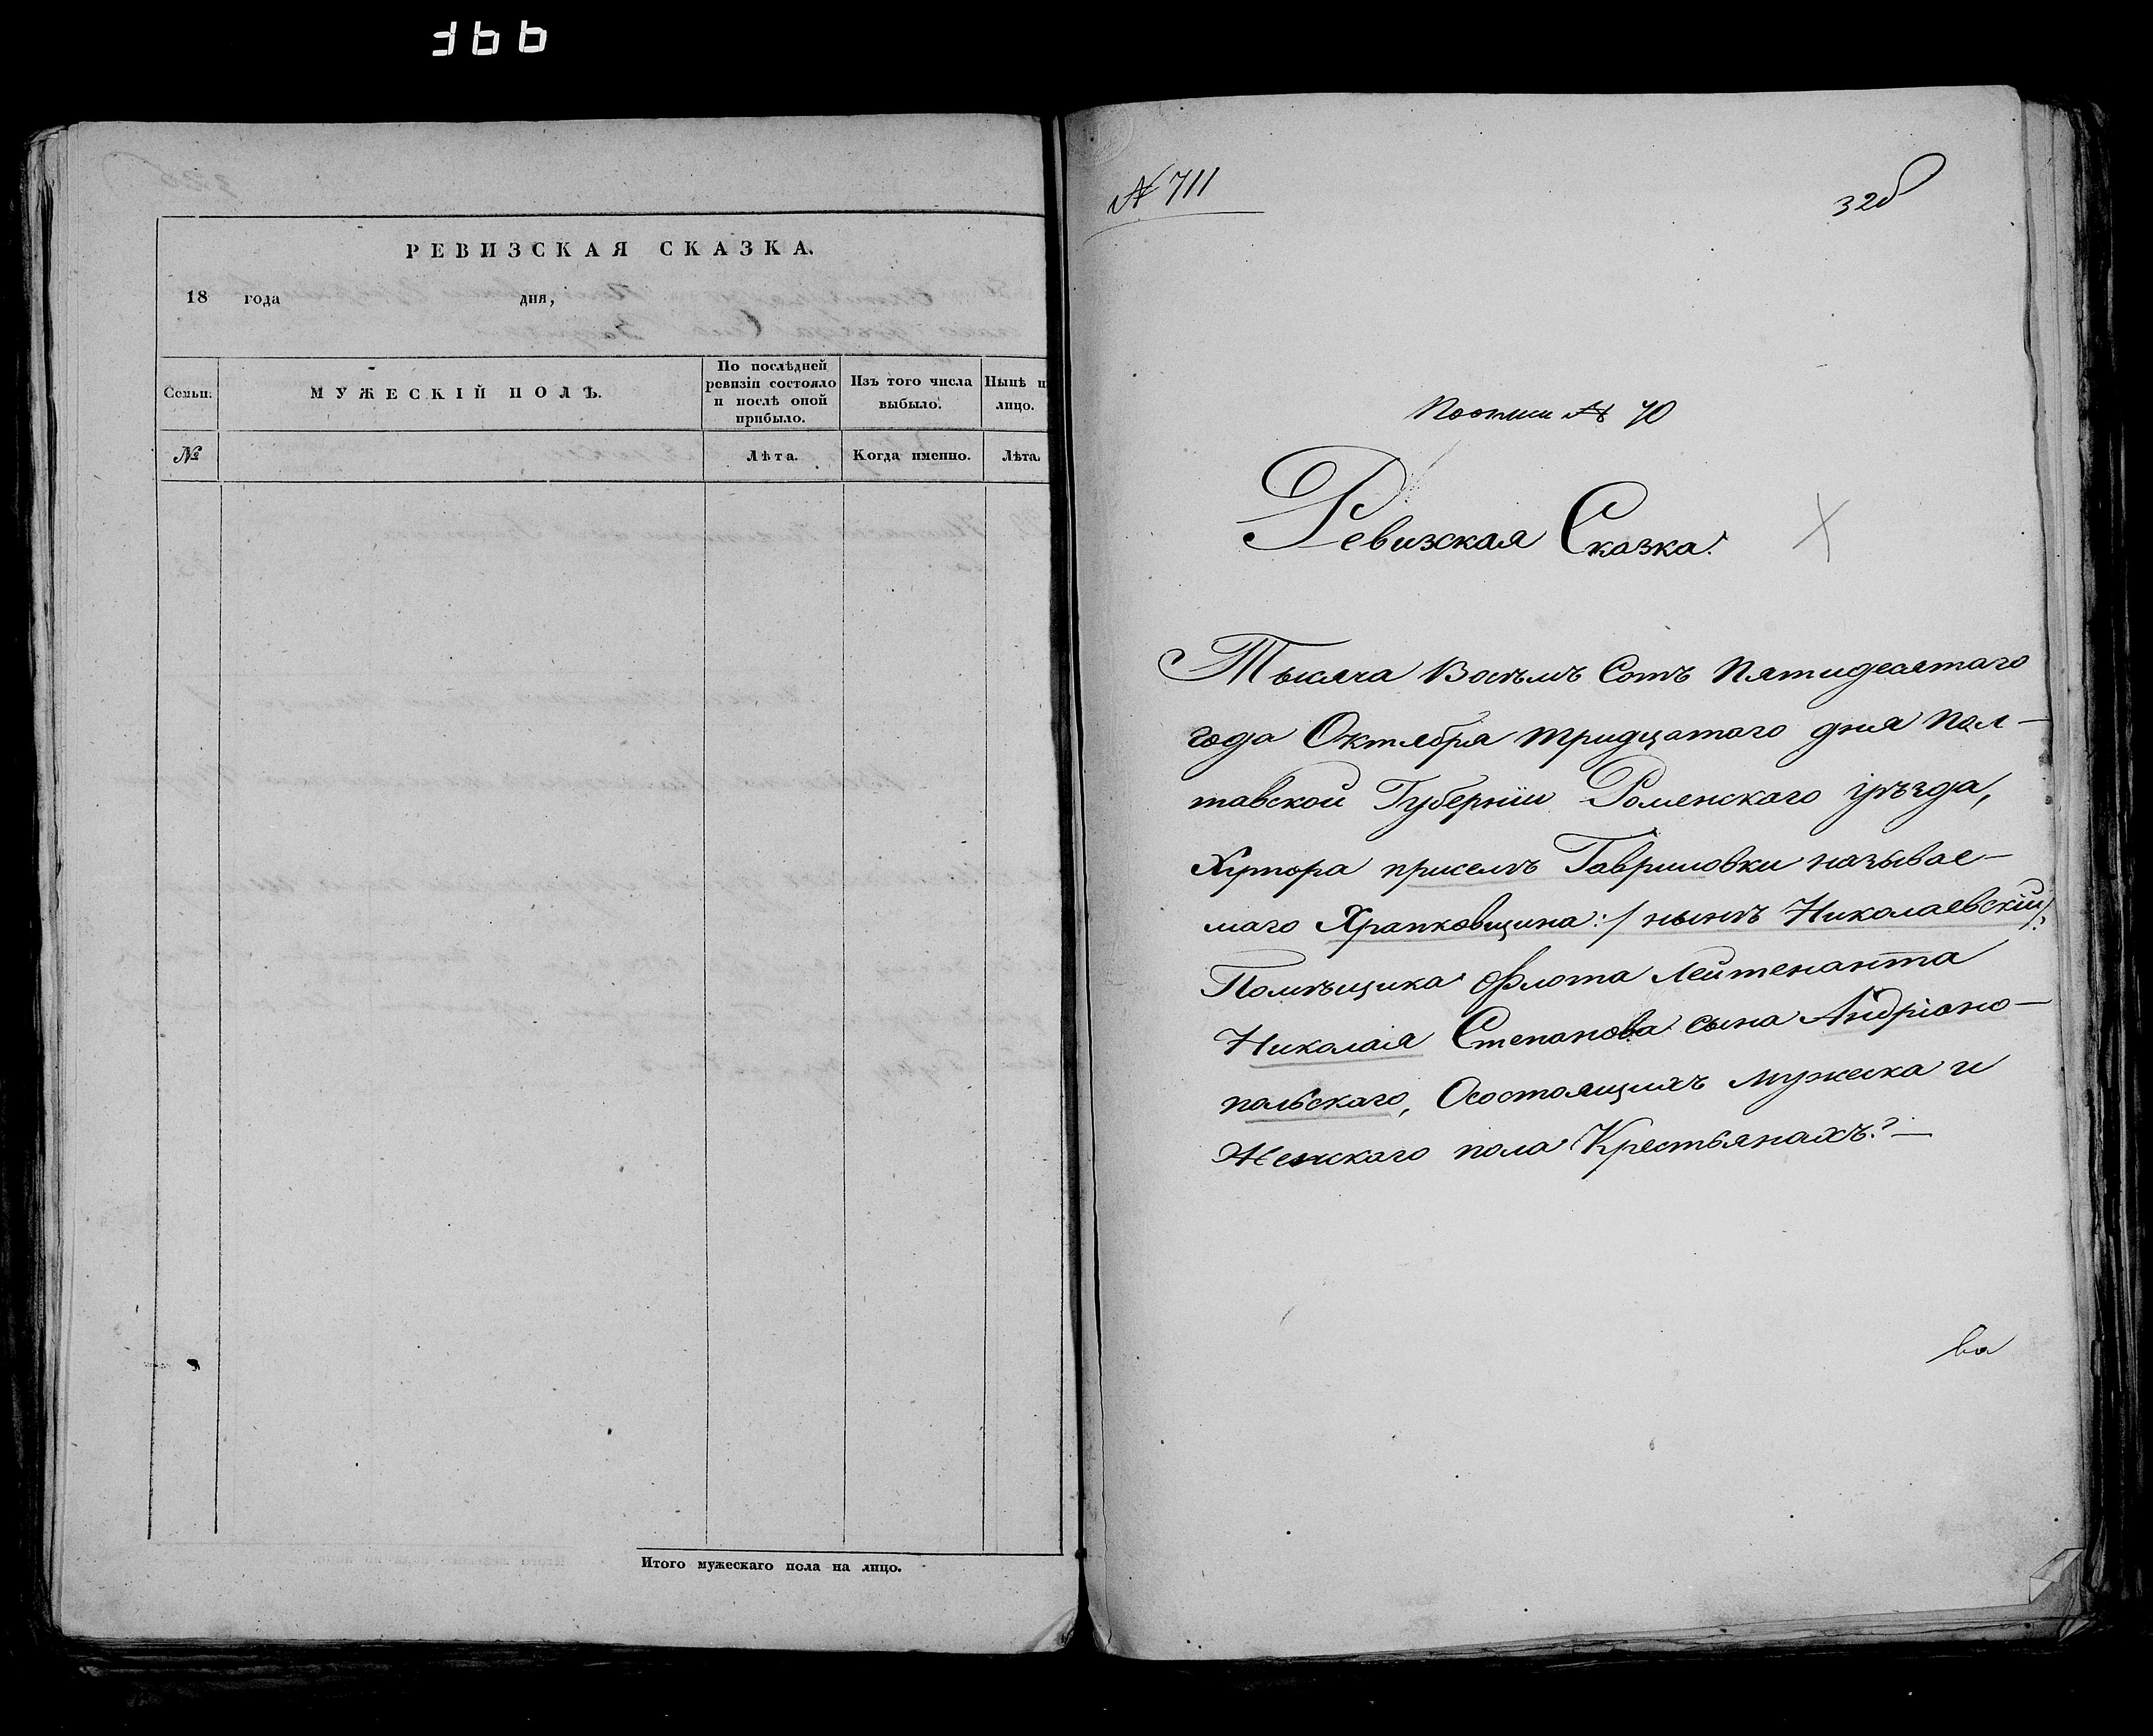 РЕВИЗСКАЯ СКАЗКА.
18 года дня,
Семьи.
МУЖЕСКІЙ ПОЛЪ.
По послѣдней ревизіи состояло и послѣ оной прибыло.
Изъ того числа выбыло.
Нынѣ н
лицо.
№
Лѣта.
Когда именно.
Лѣта.
Итого мужескаго пола на лицо.
№ 711
326
Поописи № 70
Ревизская Сказка.
Тысяча Восѣмъ Сотъ Пятидесятаго
года Октября тридцатаго дня Пол-
тавской Губерніи Роменскаго уѣзда,
Хутора приселѣ Гавриловки называе-
маго Храпковщина:/ нынѣ Николаевскій/:
Помѣщика Флота Лейтенанта
Николая Степанова сына Андріано-
польскаго, Осостоящихъ мужеска и
Женскаго пола Крестьянахъ.
ва